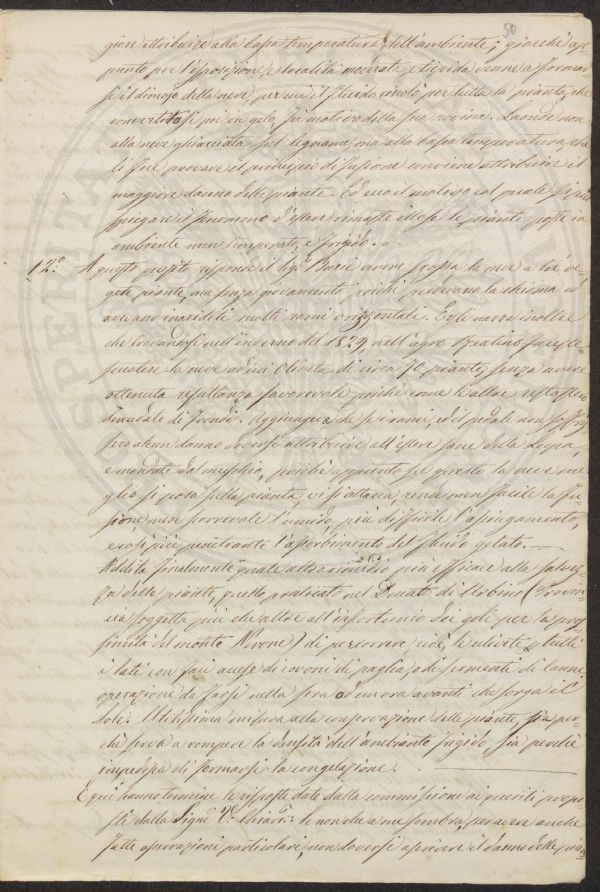 50
giore attribuire alla bassa temperatura dell'ambiente; giacchè ap-
punto per l'esposizione, e località macerata e tiepida venne a formar
si il dimojo della neve, per cui il fluido andò per tutta la pianta, che
convertitosi poi in gelo, fu motivo della sua rovina. Laonde non
alla neve ghiacciata sul legname, ma alla bassa temperatura, che
le fece provare il principio di fusione conviene attribuire il
maggiore danno delle piante. Ed ecco il motivo col quale si può
spiegare il fenomeno d'essere rimaste illese le piante poste in
ambiente men temperato, e frigido.
12.° A questo quesito risponde il Sig. avere scossa la neve a tre
piante, ma senza giovamento, poichè perderono la chioma ed
avevano inariditi molti rami orizzontali. Egli narra inoltre
che trovandosi nell'inverno del 1829, nell'agro fu fatta
scuotere la neve ad un Oliveto di circa 70 piante, senza avere
ottenuta risultanza favorevole, poichè come le altre restarono
denudate di frondi. Aggiungeva che se i rami, ed il pedale non soffri
rono alcun danno doversi attribuire all'essere sane dalla Lupa,
e mondate dal muschio, poichè appunto su questo la neve me-
glio si posa sulla pianta, vi si attacca, rende men facile la fu-
sione, men scorrevole l'umido, più difficile l'asciugamento,
e così più penetrante l'assorbimento del fluido gelato.
Addita finalmente quale altro rimedio più efficace alla salvez-
za delle piante, quello praticato nel Ducato di Urbino (Provin-
cia soggetta più che altre all'infortunio dei geli per la pros-
simità del monte Nerone) di percorrere cioè, le ulivete, tutti
i lati con fasci accesi di covoni di paglia, o di sermenti di Canne
operazione da farsi nella sera od un ora avanti che sorga il
Sole. Utilissima misura alla conservazione delle piante, sia per-
chè serva a rompere la densità dell'ambiente frigido, sia perchè
impedisca di formarsi la congelazione.
E qui hanno termine le risposte date dalla commissione ai quesiti propo-
sti dalla Sign.ª V.ª Chiariss.ª: Se non che a me sembra, per avere anche
fatte osservazioni particolari, non doversi ascrivere il danno delle pian-